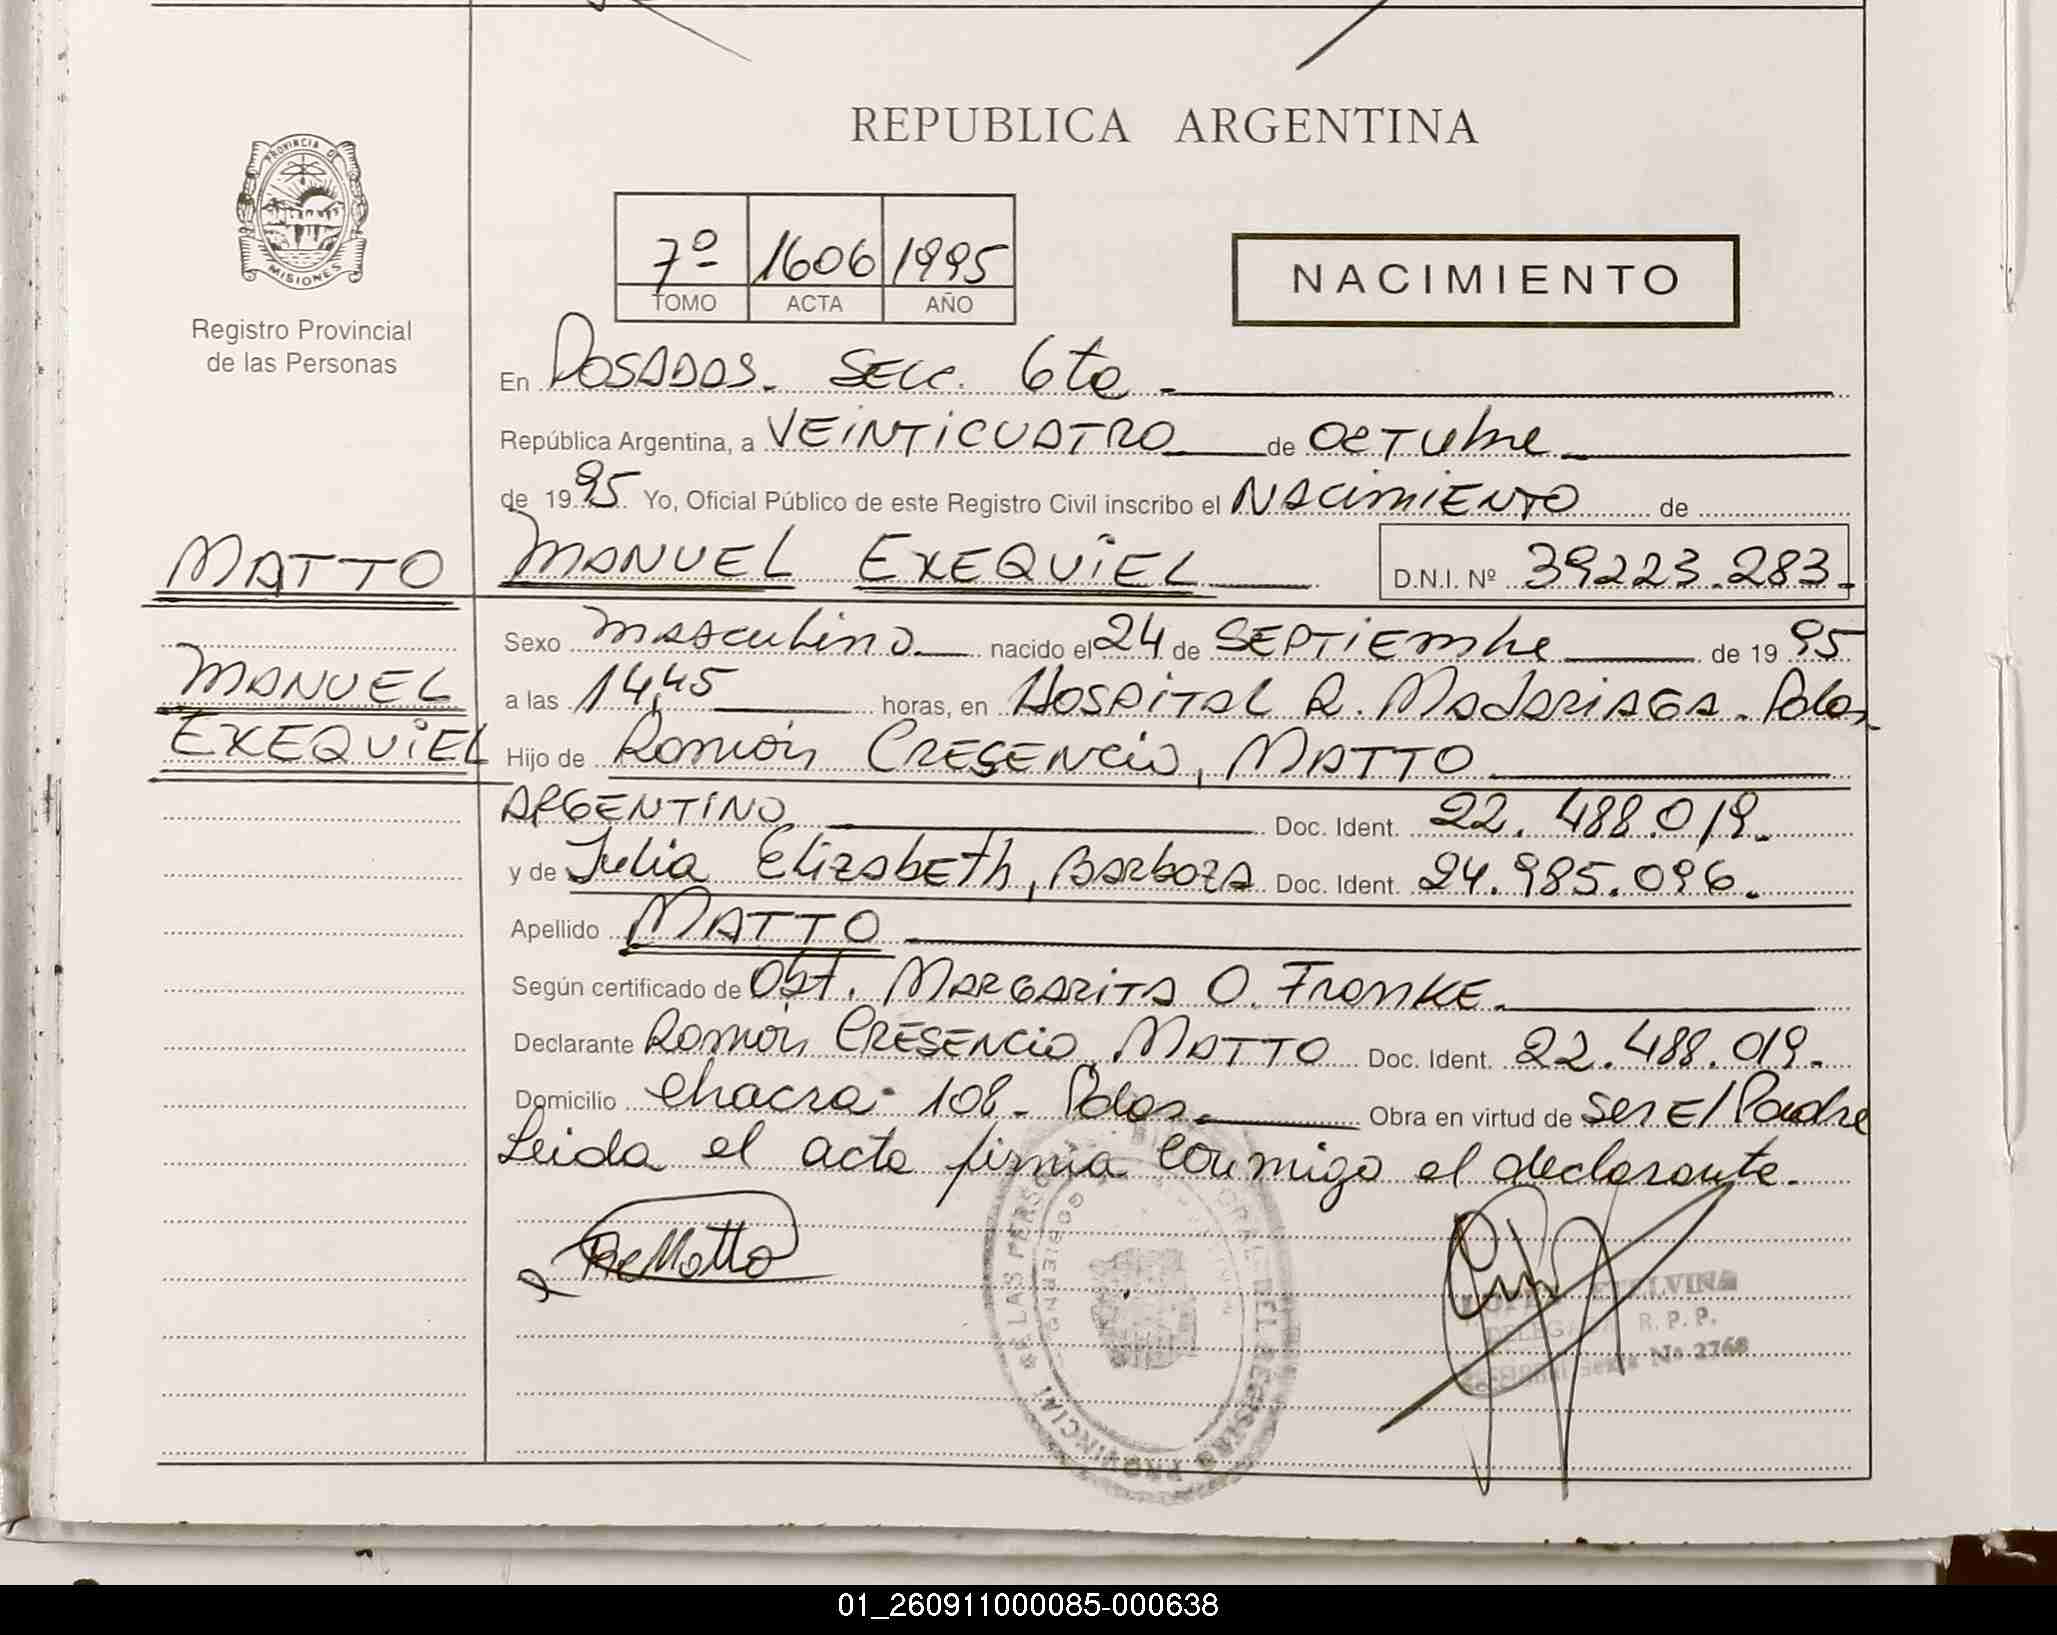 REPUBLICA ARGENTINA
PROVINCIA DE
MISIONES
Registro Provincial
de las Personas
7º 1606 1995
TOMO ACTA AÑO
NACIMIENTO
En Posadas. Secc. 6ta.
República Argentina, a VEINTICUATRO de Octubre
de 1995 Yo, Oficial Público de este Registro Civil inscribo el NACIMIENTO de
MATTO
MANUEL EXEQUIEL D.N.I. Nº 39223.283.
MANUEL
EXEQUIEL
Sexo masculino nacido el 24 de SEPTIEMbre de 1995
a las 14,45 horas, en HOSPITAL R. MADARIAGA. Pdas.
Hijo de Ramón CRESENCIO, MATTO
ARGENTINO Doc. Ident. 22.488.019.
y de Julia ElizabETh, BARbozA Doc. Ident. 24.985.096.
Apellido MATTO
Según certificado de Obst. MARGARITA O. FranKE.
Declarante Ramón CRESENCIO, MATTO Doc. Ident. 22.488.019.
Domicilio Chacra 108. Pdas. Obra en virtud de ser El Padre
Leida el acta firma conmigo el declarante.
RCMatto
ETELVINA
DELEGADA R. P. P.
Seccional Sexta Nº 2768
01_260911000085-000638